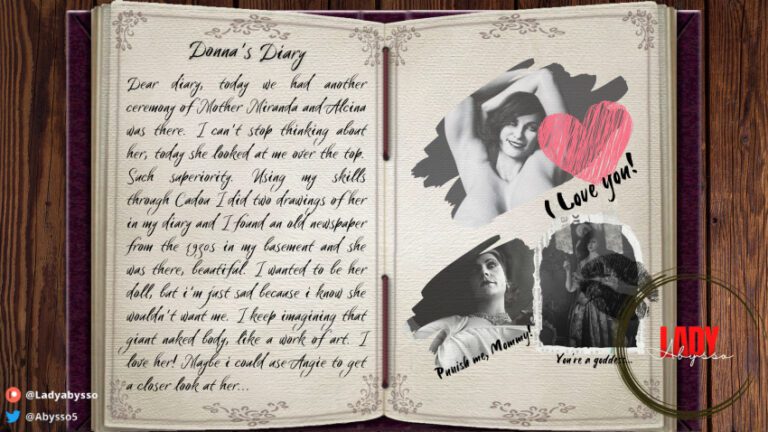 Donna's Diary
Dear diary, today we had another
ceremony of Mother Miranda and Alcina
was there. I can't stop thinking about
her, today she looked at me over the top.
Such superiority. Using my skills
through Cadou I did two drawings of her
in my diary and I found an old newspaper
from the 1930s in my basement and she
was there, beautiful. I wanted to be her
doll, but i'm just sad because i know she
wouldn't want me. I keep imagining that
giant naked body, like a work of art. I
love her! Maybe i could use Angie to get
a closer look at her...
I Love you!
Punish me, Mommy!
You're a goddess...
LADY
Abysso
@Ladyabysso
@Abysso5